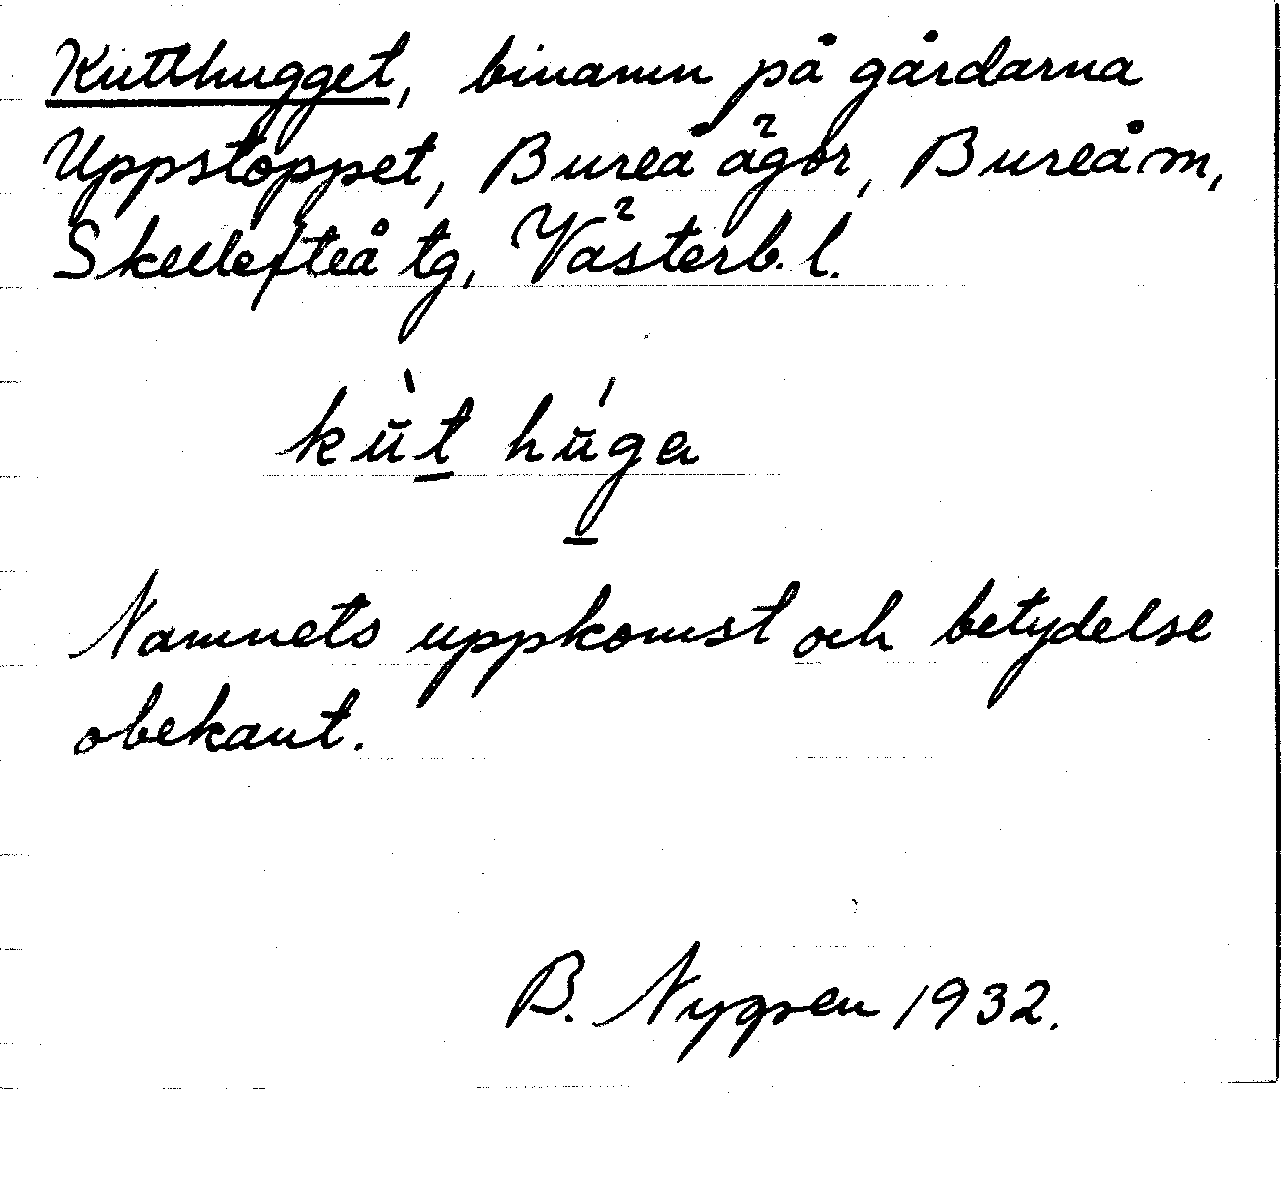 Kutthugget, binamn på gårdarna
Uppstoppet, Bureå ägor, Bureå m,
Skellefteå tg, Västerb. l.
kŭ̀t hŭ́ga
Namnets uppkomst och betydelse
obekant.
B. Nygren 1932.